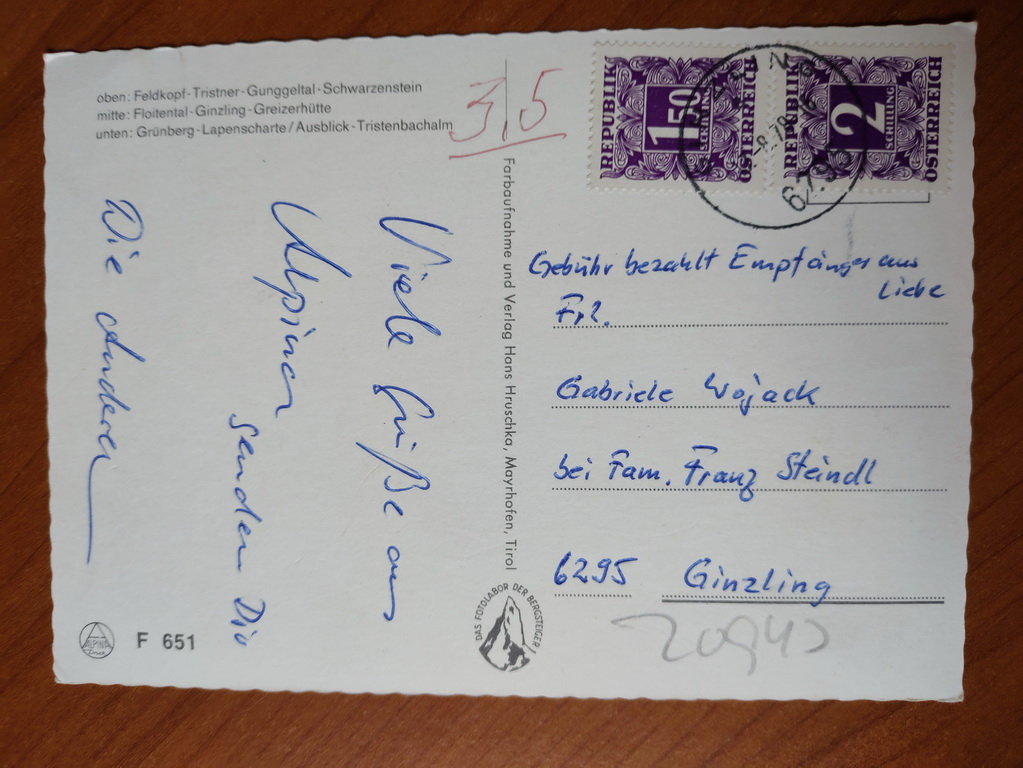 oben: Feldkopf-Tristner-Gunggeltal-Schwarzenstein
mitte: Floitental-Ginzling-Greizerhütte
unten: Grünberg-Lapenscharte/Ausblick-Tristenbachalm
3 5
REPUBLIK
1.50
SCHILLING
ÖSTERREICH
REPUBLIK
2
SCHILLING
ÖSTERREICH
Viele Grüße aus
Alpinen
senden Dir
Die Anderen
Farbaufnahme und Verlag Hans Hruschka, Mayrhofen, Tirol
Gebühr bezahlt Empfänger aus
Liebe
Frl.
Gabriele Wojack
bei Fam. Franz Steindl
6295 Ginzling
DAS FOTOLABOR DER BERGSTEIGER
ALPINA
F 651